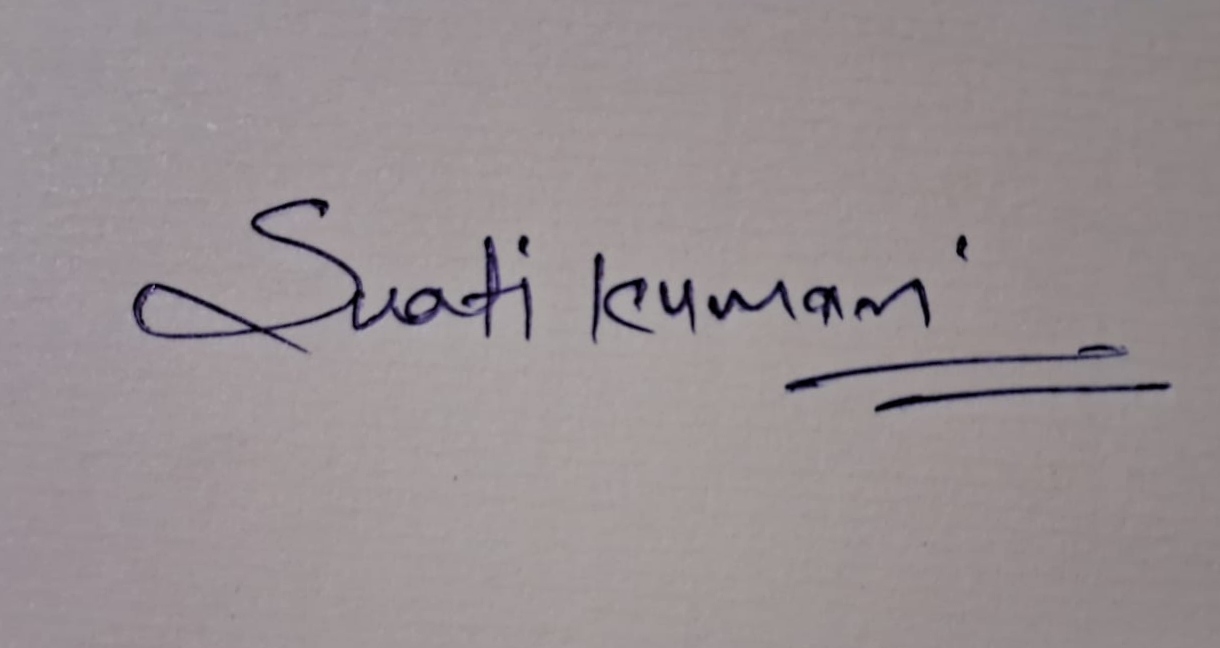 Swati kumari